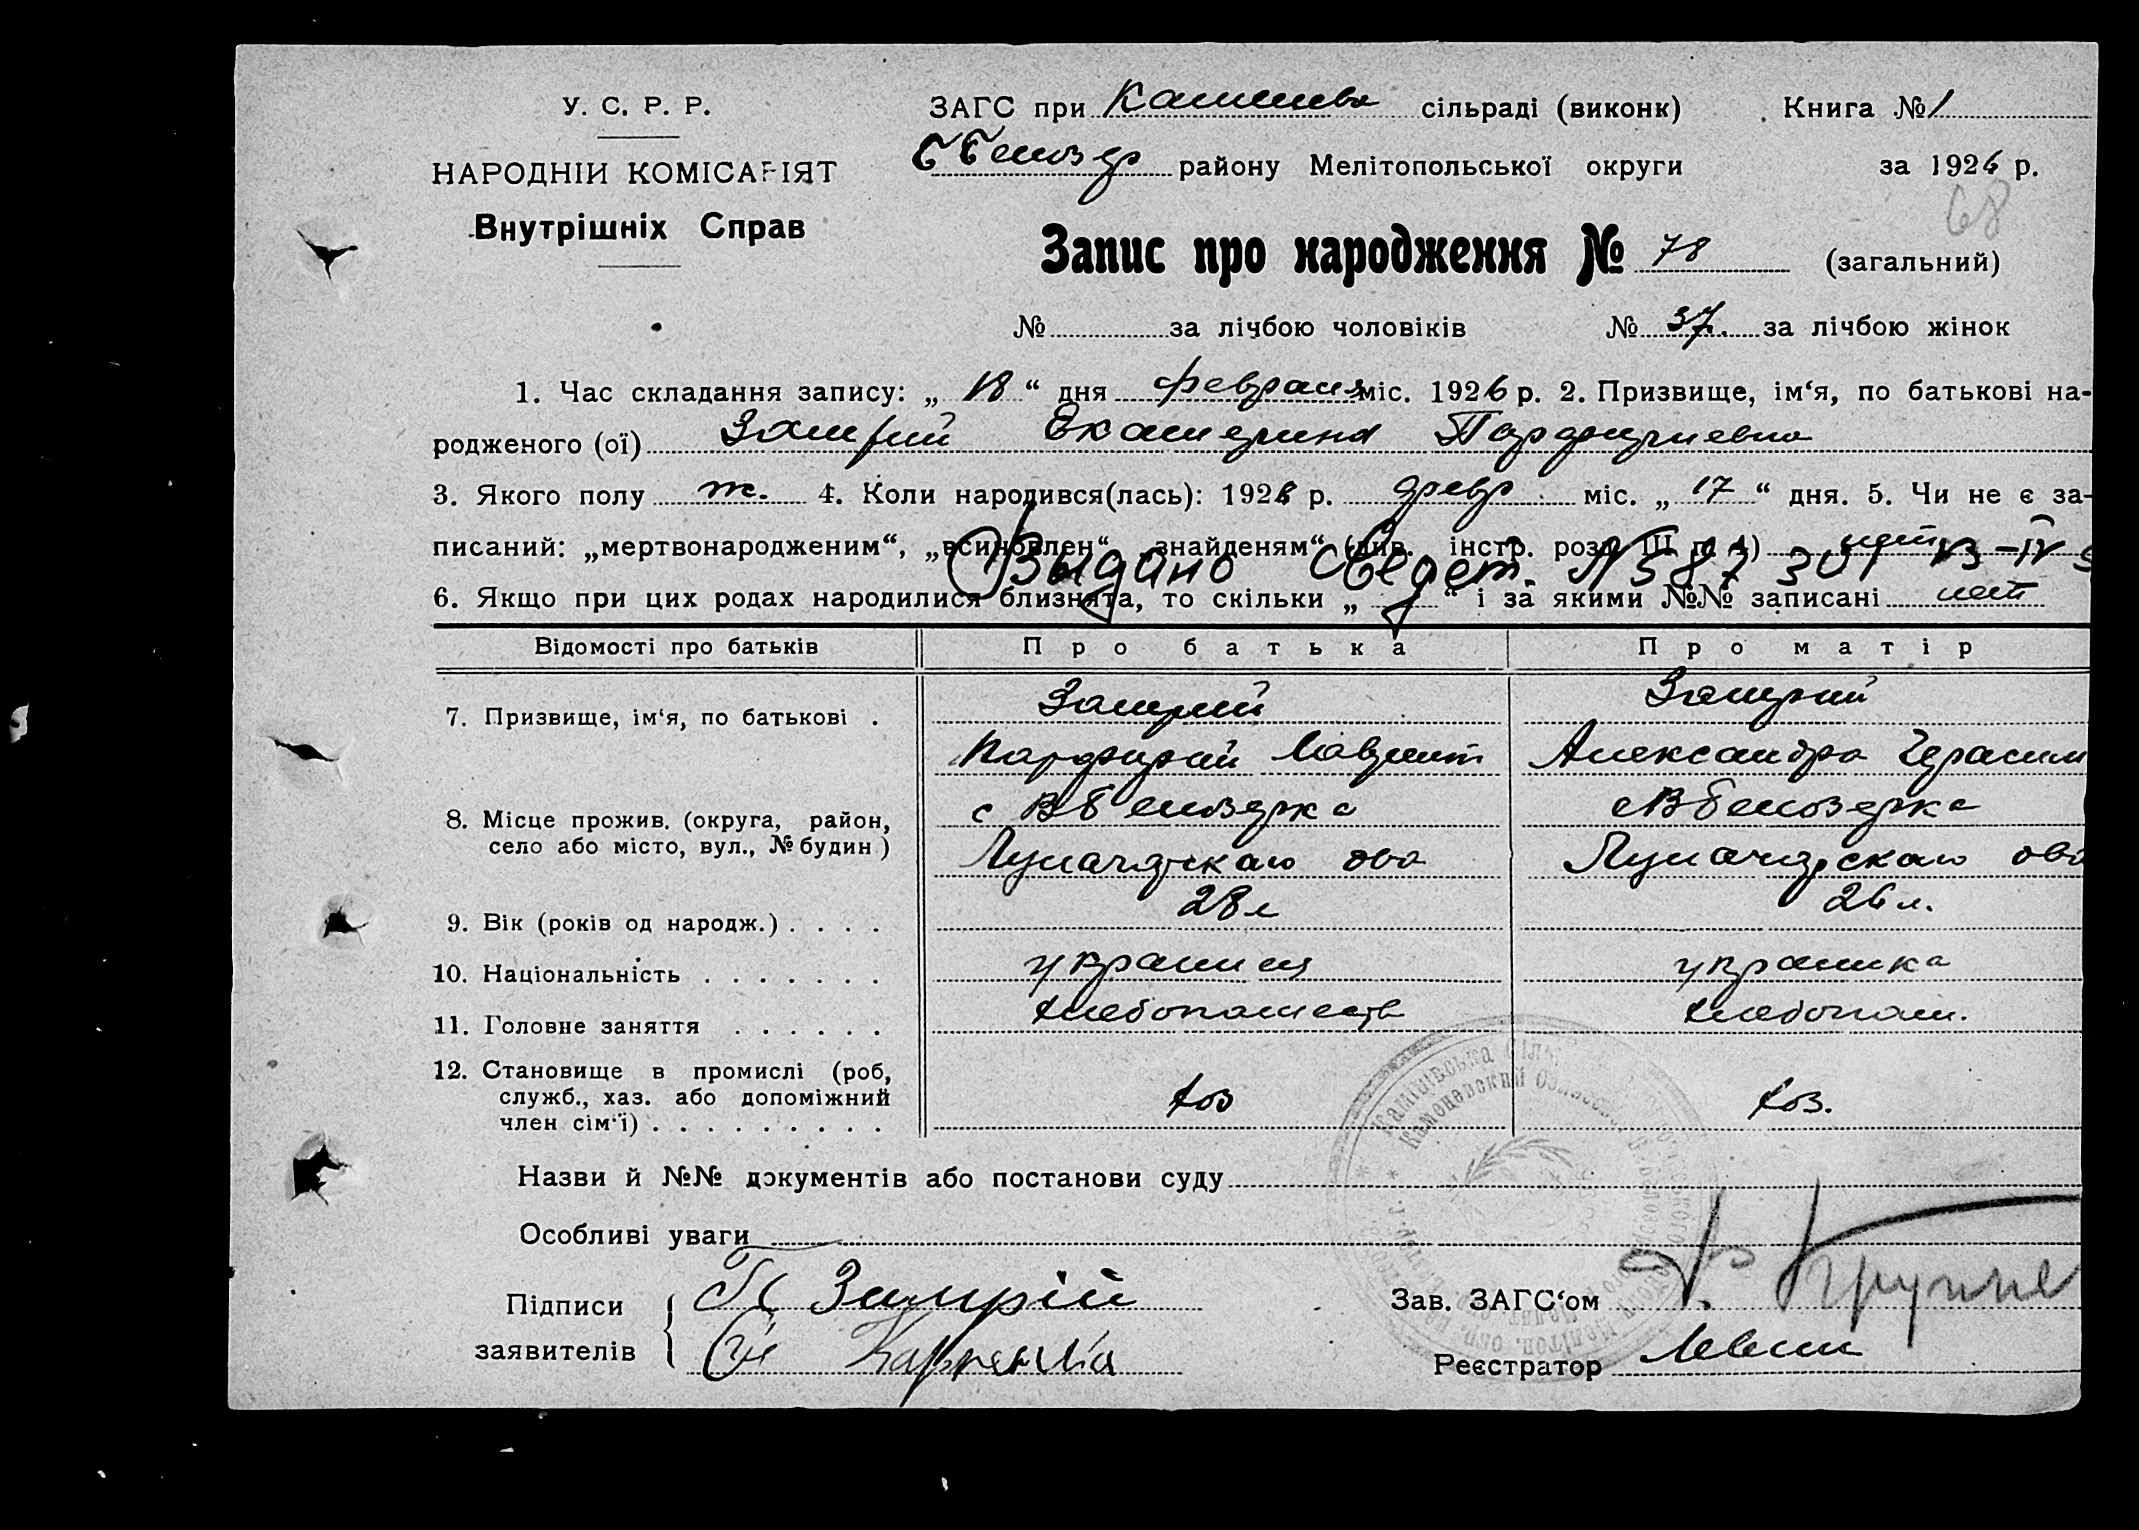 У. С. Р. Р.
НАРОДНІЙ КОМІСАРІЯТ
Внутрішніх Справ
ЗАГС при сільраді (виконк) Книга № 1
району Мелітопольської округи за 1926 р.
68
Запис про народження № 78 (загальний)
№ за лічбою чоловіків № 37. за лічбою жінок
1. Час складання запису: „ 18 “ дня февраля міс. 1926 р. 2. Призвище, ім‘я, по батькові на-
родженого (ої) Замрий Екатерина Парфириевна
3. Якого полу ж. 4. Коли народився(лась): 1926 р. февр. міс. „ 17 “ дня. 5. Чи не є за-
писаний: „мертвонародженим“, „всиновлен“ „знайденям“ (див. інстр. розд. III п. 4) нет
Выдано Свидет. №
6. Якщо при цих родах народилися близнята, то скільки „ “ і за якими №№ записані нет
Відомості про батьків Про батька Про матір
7. Призвище, ім‘я, по батькові . Замрий Замрий
Парфирий Лаврент Александра Герасим
8. Місце прожив. (округа, район, с ВБелозерка с ВБелозерка
село або місто, вул., № будин) Луначарскаго ова Луначарскаго ова
9. Вік (років од народж.) . . . . 28 л 26 л.
10. Національність . . . . . . . украинец украинка
11. Головне заняття . . . . . . хлебопашеств хлебопаш.
12. Становище в промислі (роб, служб., хаз. або допоміжний член сім‘ї) . . . . . . . . . хоз хоз.
Назви й №№ документів або постанови суду
Особливі уваги
Підписи заявителів П Замрій
Зав. ЗАГС‘ом
Реєстратор